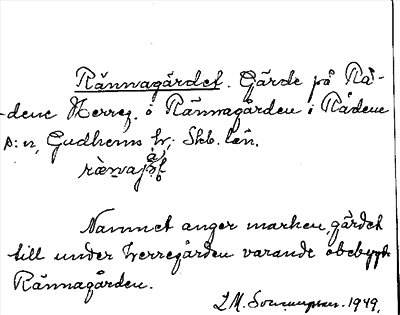 Rännagärdet. Gärde på Rå-
dene Herreg. o Rännagården i Rådene
s:n, Gudhems hd; Skb. län.

Namnet anger marken, gärdet
till under herregården varande obebyggt
Rännagården.
1949.